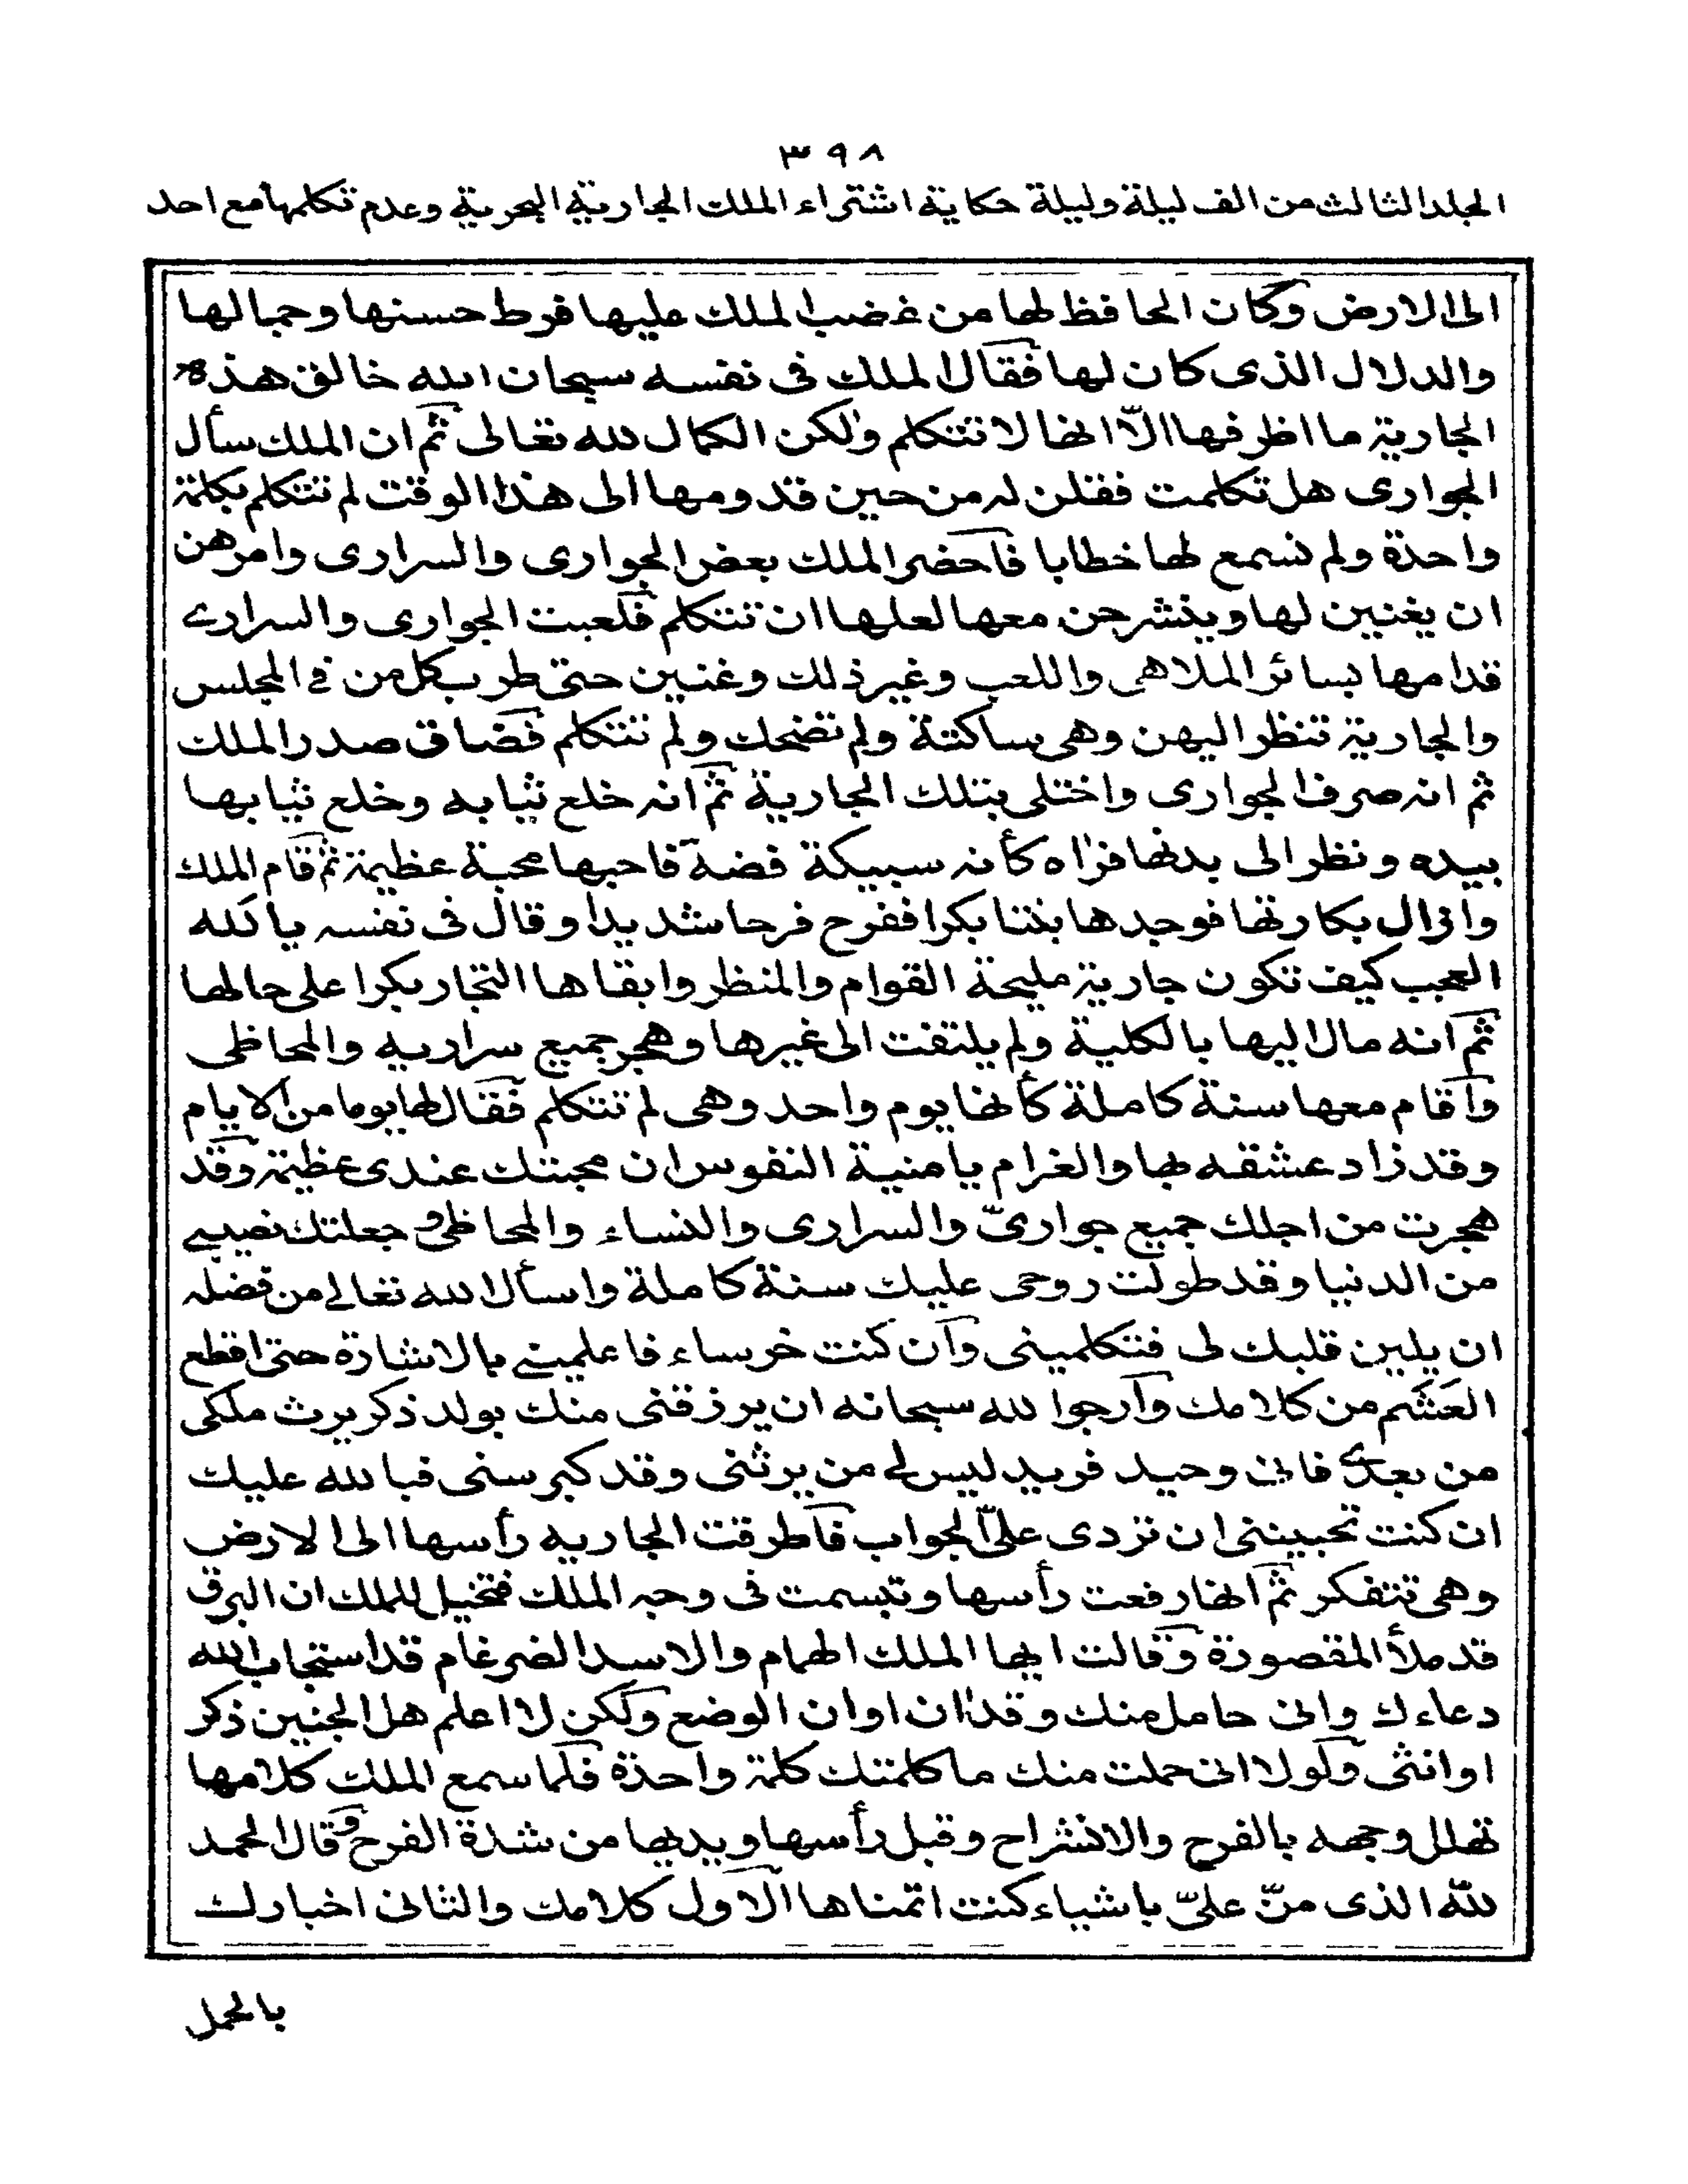 ٣٩٨
المجلد الثالث من الف ليلة وليلة حكاية اشتراء الملك الجارية البحرية وعدم تكلمها مع احد
الى الارض وكان الحافظ لها من غضب الملك عليها فرط حسنها وجمالها
والدلال الذى كان لها فقال الملك فى نفسه سبحان الله خالق هذه
الجارية ما اظرفها الّا انها لا تتكلم ولكن الكمال لله تعالى ثم ان الملك سأل
الجوارى هل تكلمت فقلن له من حين قدومها الى هذا الوقت لم تتكلم بكلمة
واحدة ولم نسمع لها خطابا فاحضر الملك بعض الجوارى والسرارى وامرهن
ان يغنين لها وينشرحن معها لعلها ان تتكلم فلعبت الجوارى والسرارى
قدامها بسائر الملاهى واللعب وغير ذلك وغنين حتى طرب كل من فى المجلس
والجارية تنظر اليهن وهى ساكتة ولم تضحك ولم تتكلم فضاق صدر الملك
ثم انه صرف الجوارى واختلى بتلك الجارية ثم انه خلع ثيابه وخلع ثيابها
بيده ونظر الى بدنها فرٰاه كأنه سبيكة فضة فاحبها محبة عظيمة ثم قام الملك
وازال بكارتها فوجدها بنتا بكرا ففرح فرحا شديدا وقال فى نفسه يا لله
العجب كيف تكون جارية مليحة القوام والمنظر وابقاها التجار بكرا على حالها
ثم انه مال اليها بالكلية ولم يلتفت الى غيرها وهجر جميع سراريه والمحاظى
واقام معها سنة كاملة كأنها يوم واحد وهى لم تتكلم فقال لها يوما من الايام
وقد زاد عشقه بها والغرام يا منية النفوس ان محبتك عندى عظيمة وقد
هجرت من اجلك جميع جوارىّ والسرارى والنساء والمحاظى وجعلتك نصيبى
من الدنيا وقد طولت روحى عليك سنة كاملة واسأل الله تعالى من فضله
ان يلين قلبك لى فتكلمينى وان كنت خرساء فاعلمينى بالاشارة حتى اقطع
العَشَم من كلامك وارجوا لله سبحانه ان يرزقنى منك بولد ذكر يرث ملكى
من بعدى فانى وحيد فريد ليس لى من يرثنى وقد كبر سنى فبا لله عليك
ان كنت تحبيننى ان تردى علىّ الجواب فاطرقت الجاريه رأسها الى الارض
وهى تتفكر ثم انها رفعت رأسها وتبسمت فى وجه الملك فتخيل للملك ان البرق
قد ملأ المقصورة وقالت ايها الملك الهمام والاسد الضرغام قد استجاب الله
دعاءك وانى حامل منك وقد اٰن اوان الوضع ولكن لا اعلم هل الجنين ذكر
او انثى ولولا انى حملت منك ما كلمتك كلمة واحدة فلما سمع الملك كلامها
تهلل وجهه بالفرح والانشراح وقبل رأسها ويديها من شدة الفرح وقال الحمد
للّه الذى منّ علىّ باشياء كنت اتمناها الاول كلامك والثانى اخبارك
بالحمل